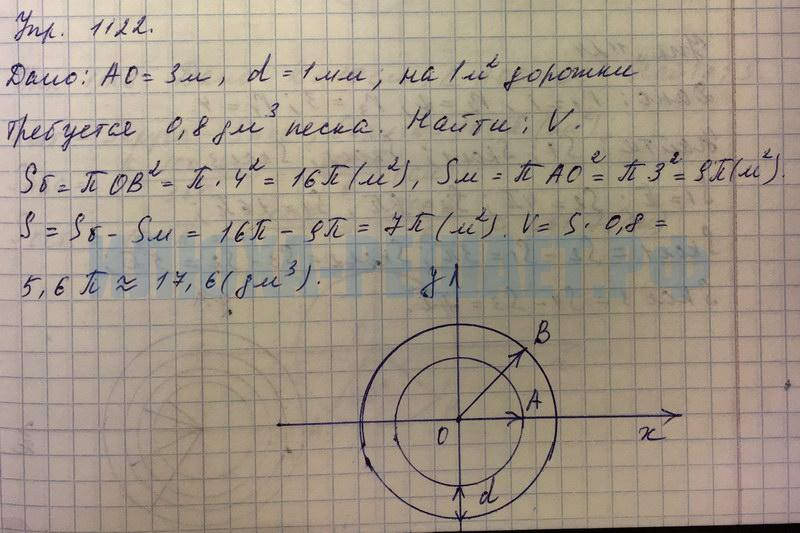 Упр. 1122.
Дано: AO = 3м, d = 1мм, на 1м² дорожки
требуется 0,8 дм³ песка. Найти: V.
Sб = π OB² = π · 4² = 16π (м²), Sм = π AO² = π 3² = 9π (м²).
S = Sб - Sм = 16π - 9π = 7π (м²). V = S · 0,8 =
5,6 π ≈ 17,6 (дм³).
y
B
A
O
x
d